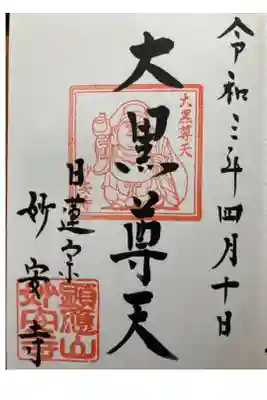 令和三年四月十日
大黒尊天
大黒尊天
日蓮宗
妙安寺
顕應山
妙安寺